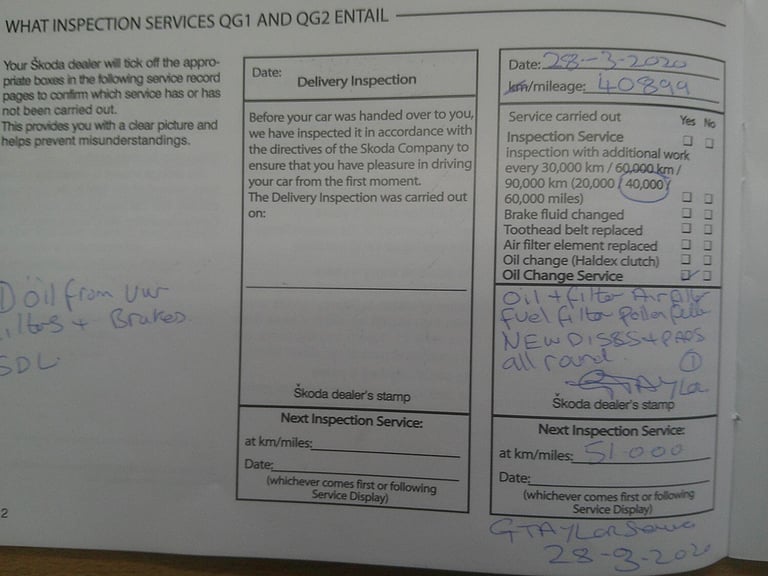 WHAT INSPECTION SERVICES QG1 AND QG2 ENTAIL
Your Škoda dealer will tick off the appro-
priate boxes in the following service record
pages to confirm which service has or has
not been carried out.
This provides you with a clear picture and
helps prevent misunderstandings.
① oil from vw
ilters + Brakes.
SDL
2
Date:
Delivery Inspection
Before your car was handed over to you,
we have inspected it in accordance with
the directives of the Skoda Company to
ensure that you have pleasure in driving
your car from the first moment.
The Delivery Inspection was carried out
on:
Škoda dealer's stamp
Next Inspection Service:
at km/miles:
Date:
(whichever comes first or following
Service Display)
Date: 28-3-2020
km/mileage: 40899
Service carried out Yes No
Inspection Service
inspection with additional work
every 30,000 km / 60,000 km /
90,000 km (20,000 / 40,000 /
60,000 miles)
Brake fluid changed
Toothead belt replaced
Air filter element replaced
Oil change (Haldex clutch)
Oil Change Service
Oil + filter Air filter
fuel filter pollen filter
NEW DISBS + PADS
all round. ①
GTAYLor
Škoda dealer's stamp
Next Inspection Service:
at km/miles: 51-000
Date:
(whichever comes first or following
Service Display)
GTAYLor
28-3-2020